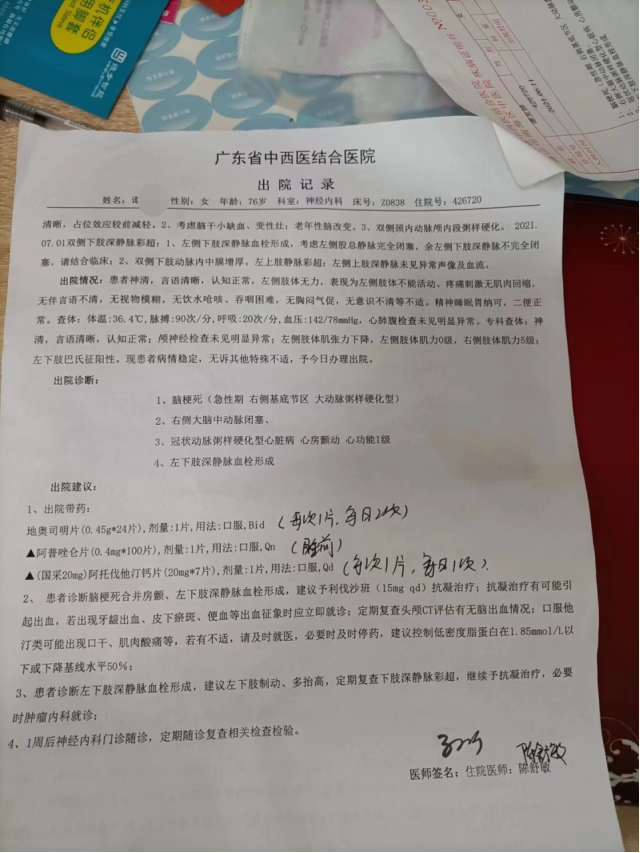 广东省中西医结合医院
出院记录
姓名：谌 性别：女 年龄：76岁 科室：神经内科 床号：Z0838 住院号：426720
清晰，占位效应较前减轻。2、考虑脑干小缺血、变性灶；老年性脑改变。3、双侧颈内动脉颅内段粥样硬化。 2021.
07.01双侧下肢深静脉彩超：1、左侧下肢深静脉血栓形成，考虑左侧股总静脉完全闭塞，余左侧下肢深静脉不完全闭
塞。请结合临床；2、双侧下肢动脉内中膜增厚。左上肢静脉彩超：左侧上肢深静脉未见异常声像及血流。
出院情况：患者神清，言语清晰，认知正常。左侧肢体无力，表现为左侧肢体不能活动、疼痛刺激无肌肉回缩，
无伴言语不清，无视物模糊，无饮水呛咳、吞咽困难，无胸闷气促，无意识不清等不适。精神睡眠胃纳可，二便正
常。查体：体温:36.4℃,脉搏:90次/分,呼吸:20次/分,血压:142/78mmHg，心肺腹检查未见明显异常。专科查体：神
清，言语清晰，认知正常；颅神经检查未见明显异常；左侧肢体肌张力下降，左侧肢体肌力0级，右侧肢体肌力5级；
左下肢巴氏征阳性。现患者病情稳定，无诉其他特殊不适，予今日办理出院。
出院诊断：
1、脑梗死（急性期 右侧基底节区 大动脉粥样硬化型）
2、右侧大脑中动脉闭塞、
3、冠状动脉粥样硬化型心脏病 心房颤动 心功能I级
4、左下肢深静脉血栓形成
出院建议：
1、出院带药：
地奥司明片(0.45g*24片),剂量:1片,用法:口服,Bid （每次1片，每日2次）
▲阿普唑仑片(0.4mg*100片),剂量:1片,用法:口服,Qn （睡前）
▲(国采20mg)阿托伐他汀钙片(20mg*7片),剂量:1片,用法:口服,Qd （每次1片，每日1次）
2、 患者诊断脑梗死合并房颤、左下肢深静脉血栓形成，建议予利伐沙班（15mg qd）抗凝治疗；抗凝治疗有可能引
起出血，若出现牙龈出血、皮下瘀斑、便血等出血征象时应立即就诊；定期复查头颅CT评估有无脑出血情况；口服他
汀类可能出现口干、肌肉酸痛等，若有不适，请及时就医，必要时及时停药，建议控制低密度脂蛋白在1.85mmol/L以
下或下降基线水平50%；
3、患者诊断左下肢深静脉血栓形成，建议左下肢制动、多抬高，定期复查下肢深静脉彩超，继续予抗凝治疗，必要
时肿瘤内科就诊；
4、1周后神经内科门诊随诊，定期随诊复查相关检查检验。
陈舒敏
医师签名：住院医师：陈舒敏